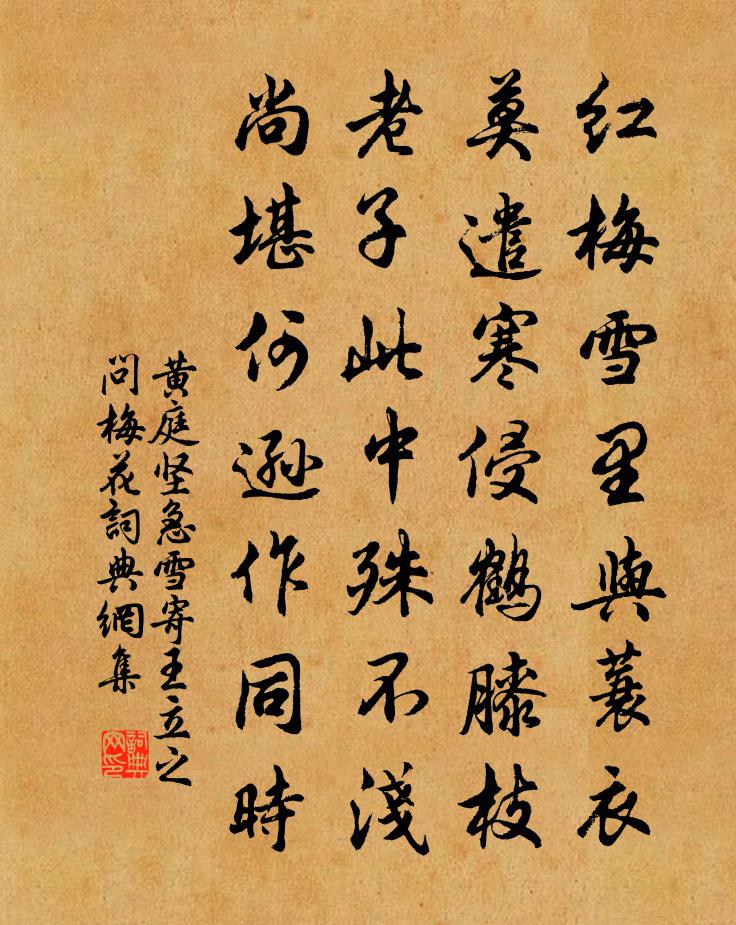 红梅雪里與蓑衣
莫遣寒侵鶴膝枝
老子此中殊不淺
尚堪何遜作同時
黄庭坚急雪寄王立之
问梅花詞典網集
詞典
网印